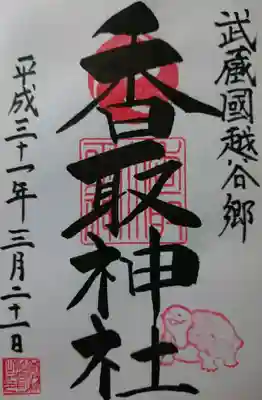 武蔵國越谷郷
香取神社
平成三十一年三月二十一日